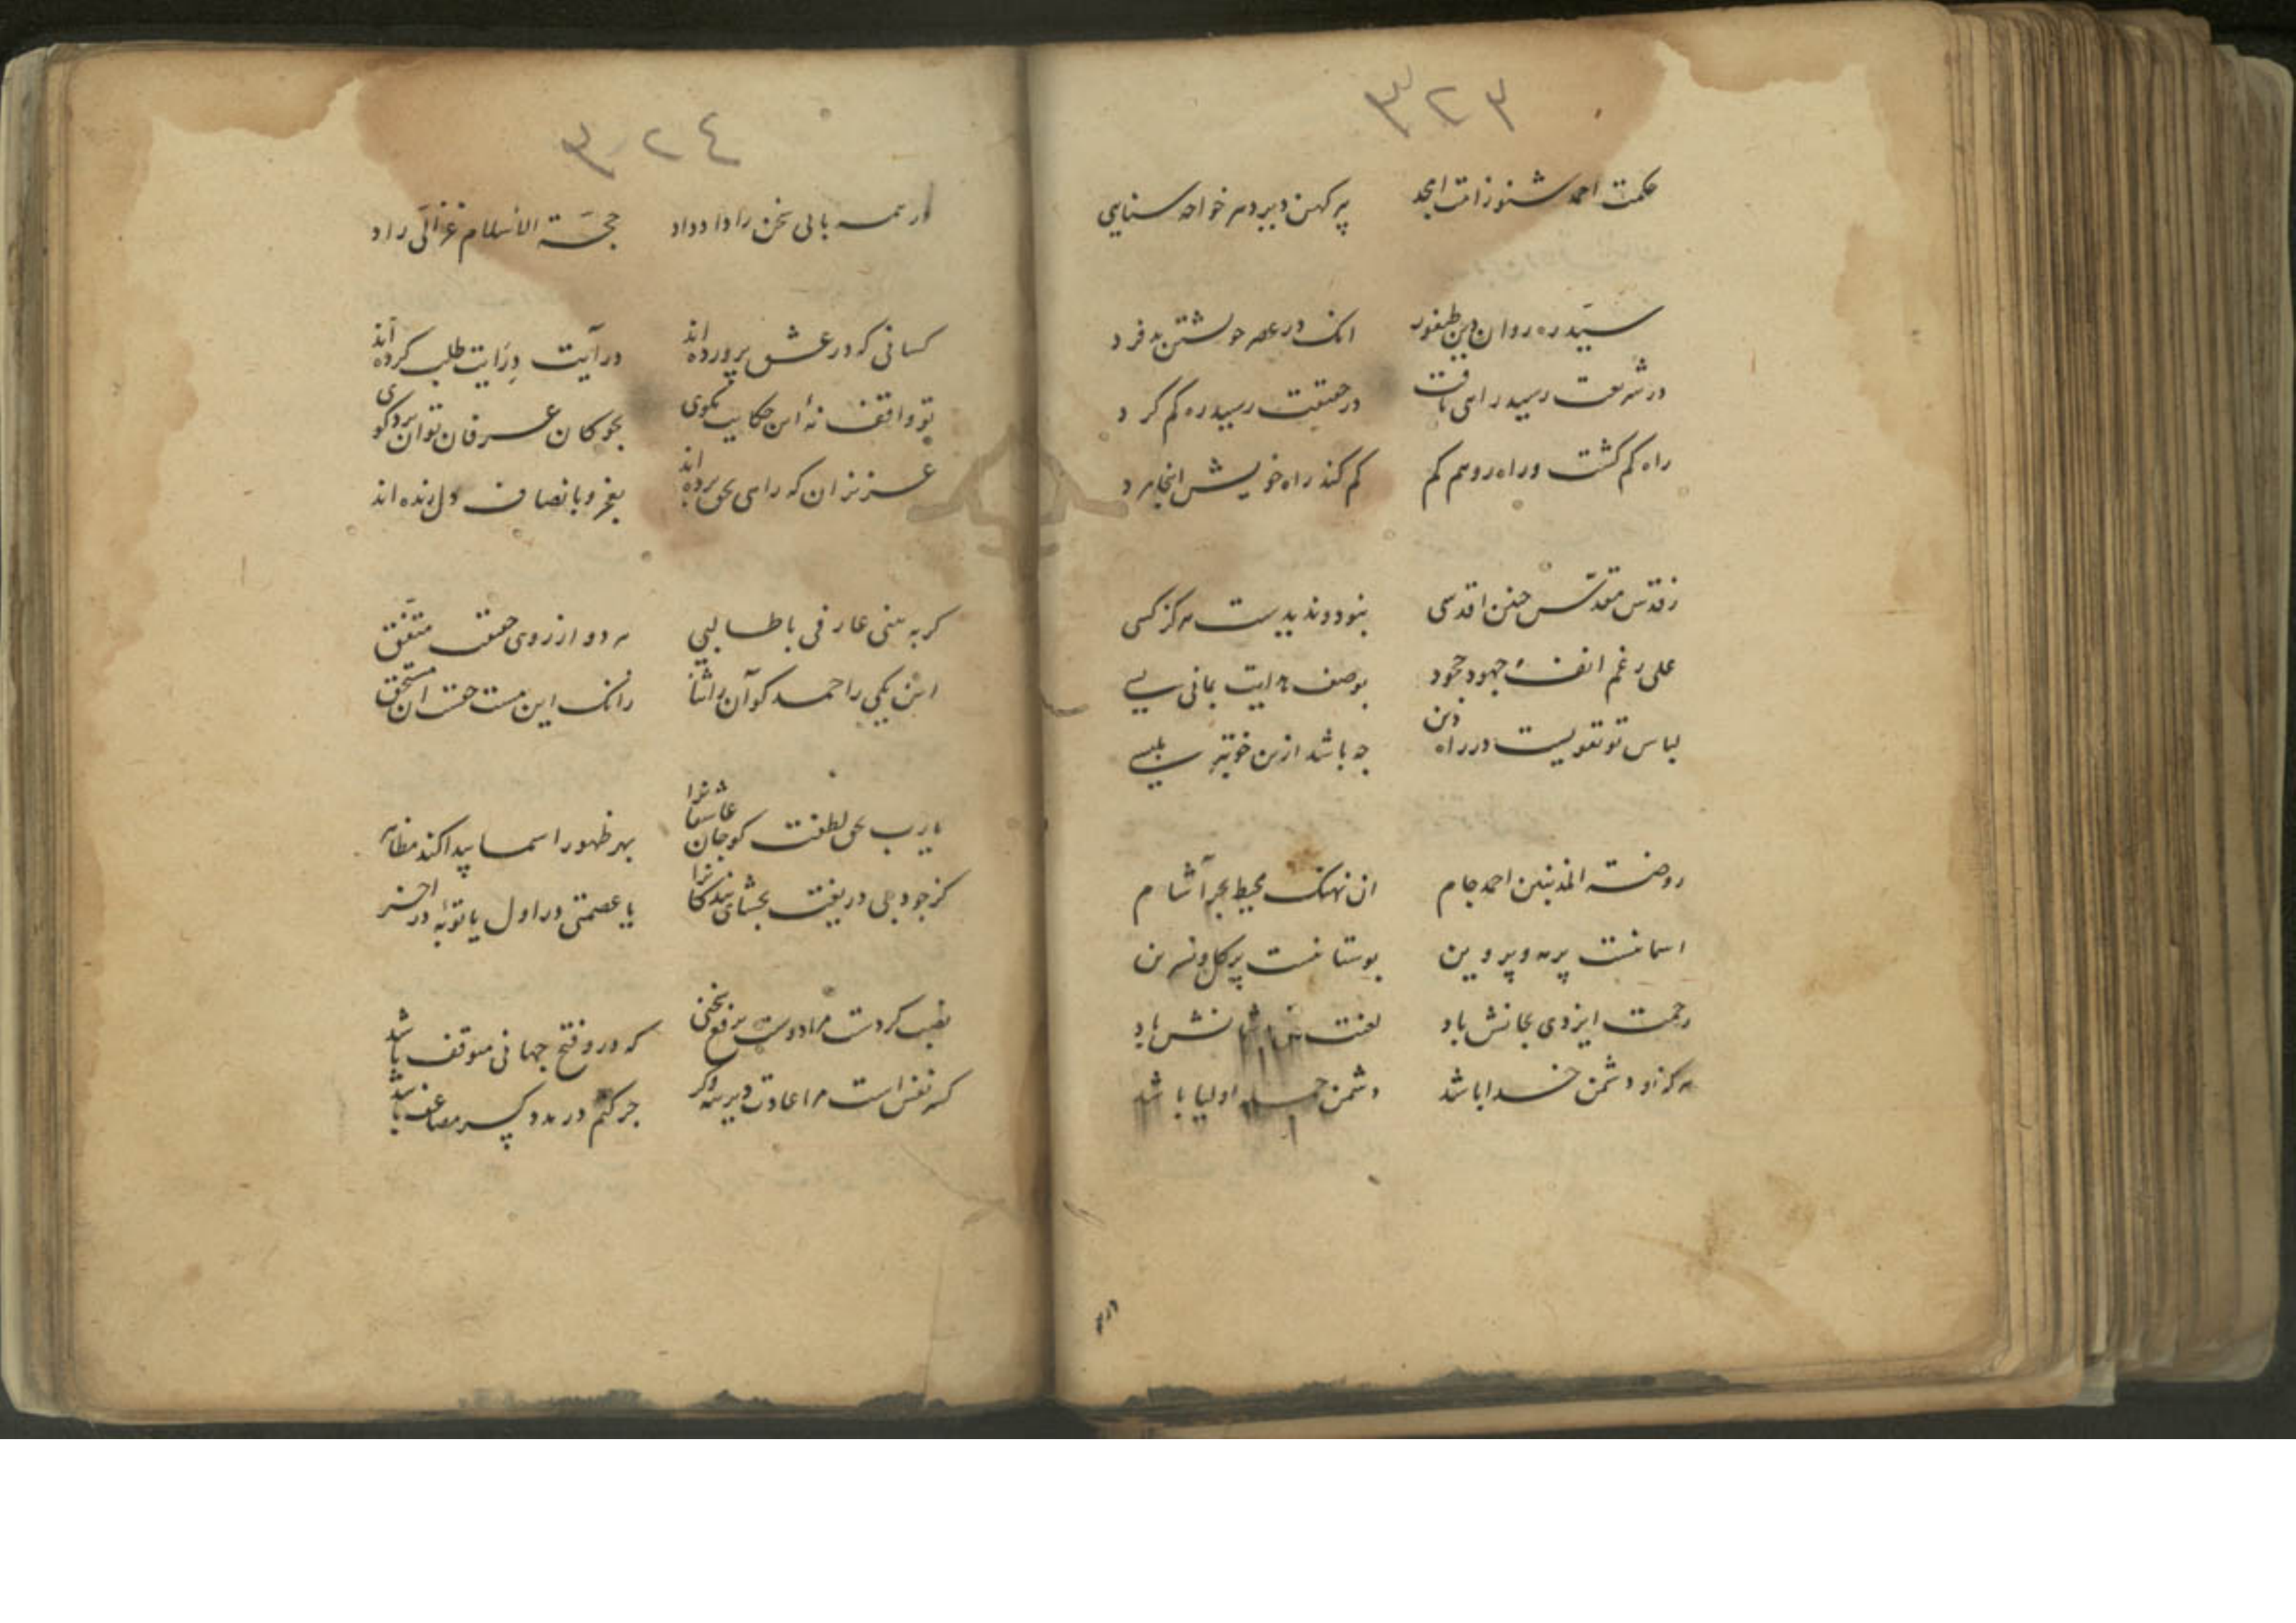 ٣٢٣
حکمت احمد شنو زامت ابجد پیر کهن دبیر دهر خواجه سنایی
سید ره روان دین طیفور انک در عصر خویشتن بد فرد
در شریعت رسید راهی یافت در حقیقت رسید ره کم کرد
راه کم کشت و راه رو هم کم کم کند راه خویش انجا مرد
ز قدس مقدس چنین اقدسی نبود و ندیدست هرکز کسی
علی رغم انف جهود جحود بوصف هدایت بمانی بسی
لباس تو تقویست در راه دین چه باشد ازین خوبتر ملبسی
روضة المذنبین احمد جام ان نهنک محیط بحر آشام
اسمانیست پر مه و پروین بوستانیست پر کل و نسرین
رحمت ایزدی بجانش باد لعنت نش باد
هرکه او دشمن خدا باشد دشمن اولیا باشد
٣٢٤
از همه بابی سخن را داد داد حجة الاسلام غزالی راد
کسانی که در عشق پرورده اند در آیت درایت طلب کرده اند
تو واقف نۀ این حکایت مکوی بچوکان عرفان توان برد کوی
عزیزان که راهی بحق برده اند بفخر و بانصاف دل زنده اند
کر به بینی عارفی با طالبی هر دو از روی حقیقت متفق
این یکی را حمد کو آن را ثنا زانک این مستحقست ان مستحق
یارب بحق لطفت کو جان عاشقانرا بهر ظهور اسما پیدا کند مظاهر
کز جود بی دریغت بخشای بندکانرا یا عصمتی در اول یا توبۀ در اخر
نصیب کردست مرا دوست برفع سخنی که درو فتح جهانی متوقف باشد
کسر نفس است مرا عادت دیرینه وکر جر کنم در مدد کسر مضاعف باشد